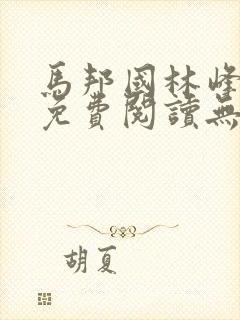 馬邦國林峰
免費閱讀無
胡夏